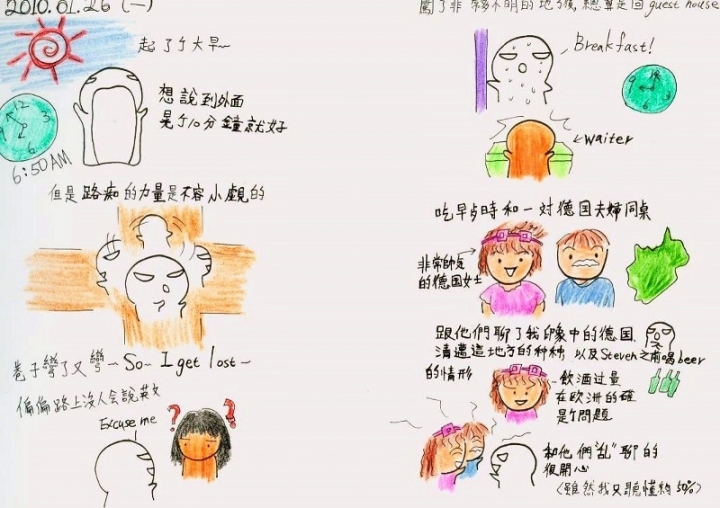 2010.01.26 (一)
起了个大早~
想說到外面
晃个10分鐘就好
12
3
9
6:50AM
但是路痴的力量是不容小覷的
巷子彎了又彎~ So~ I get lost~
偏偏路上沒人会說英文
Excuse me
? ?
闖了非常多不明的地方後,總算是回guest house
Breakfast!
9
3
6
waiter
吃早歺時和一对德国夫婦同桌
非常帥氣
的德国女士
跟他們聊了我印象中的德国、
清邁這地方的种种 以及Steven之前喝beer
的情形
飲酒过量
在欧洲的確
是个問題
和他們"乱"聊的
很開心
(雖然我只聽懂約50%)